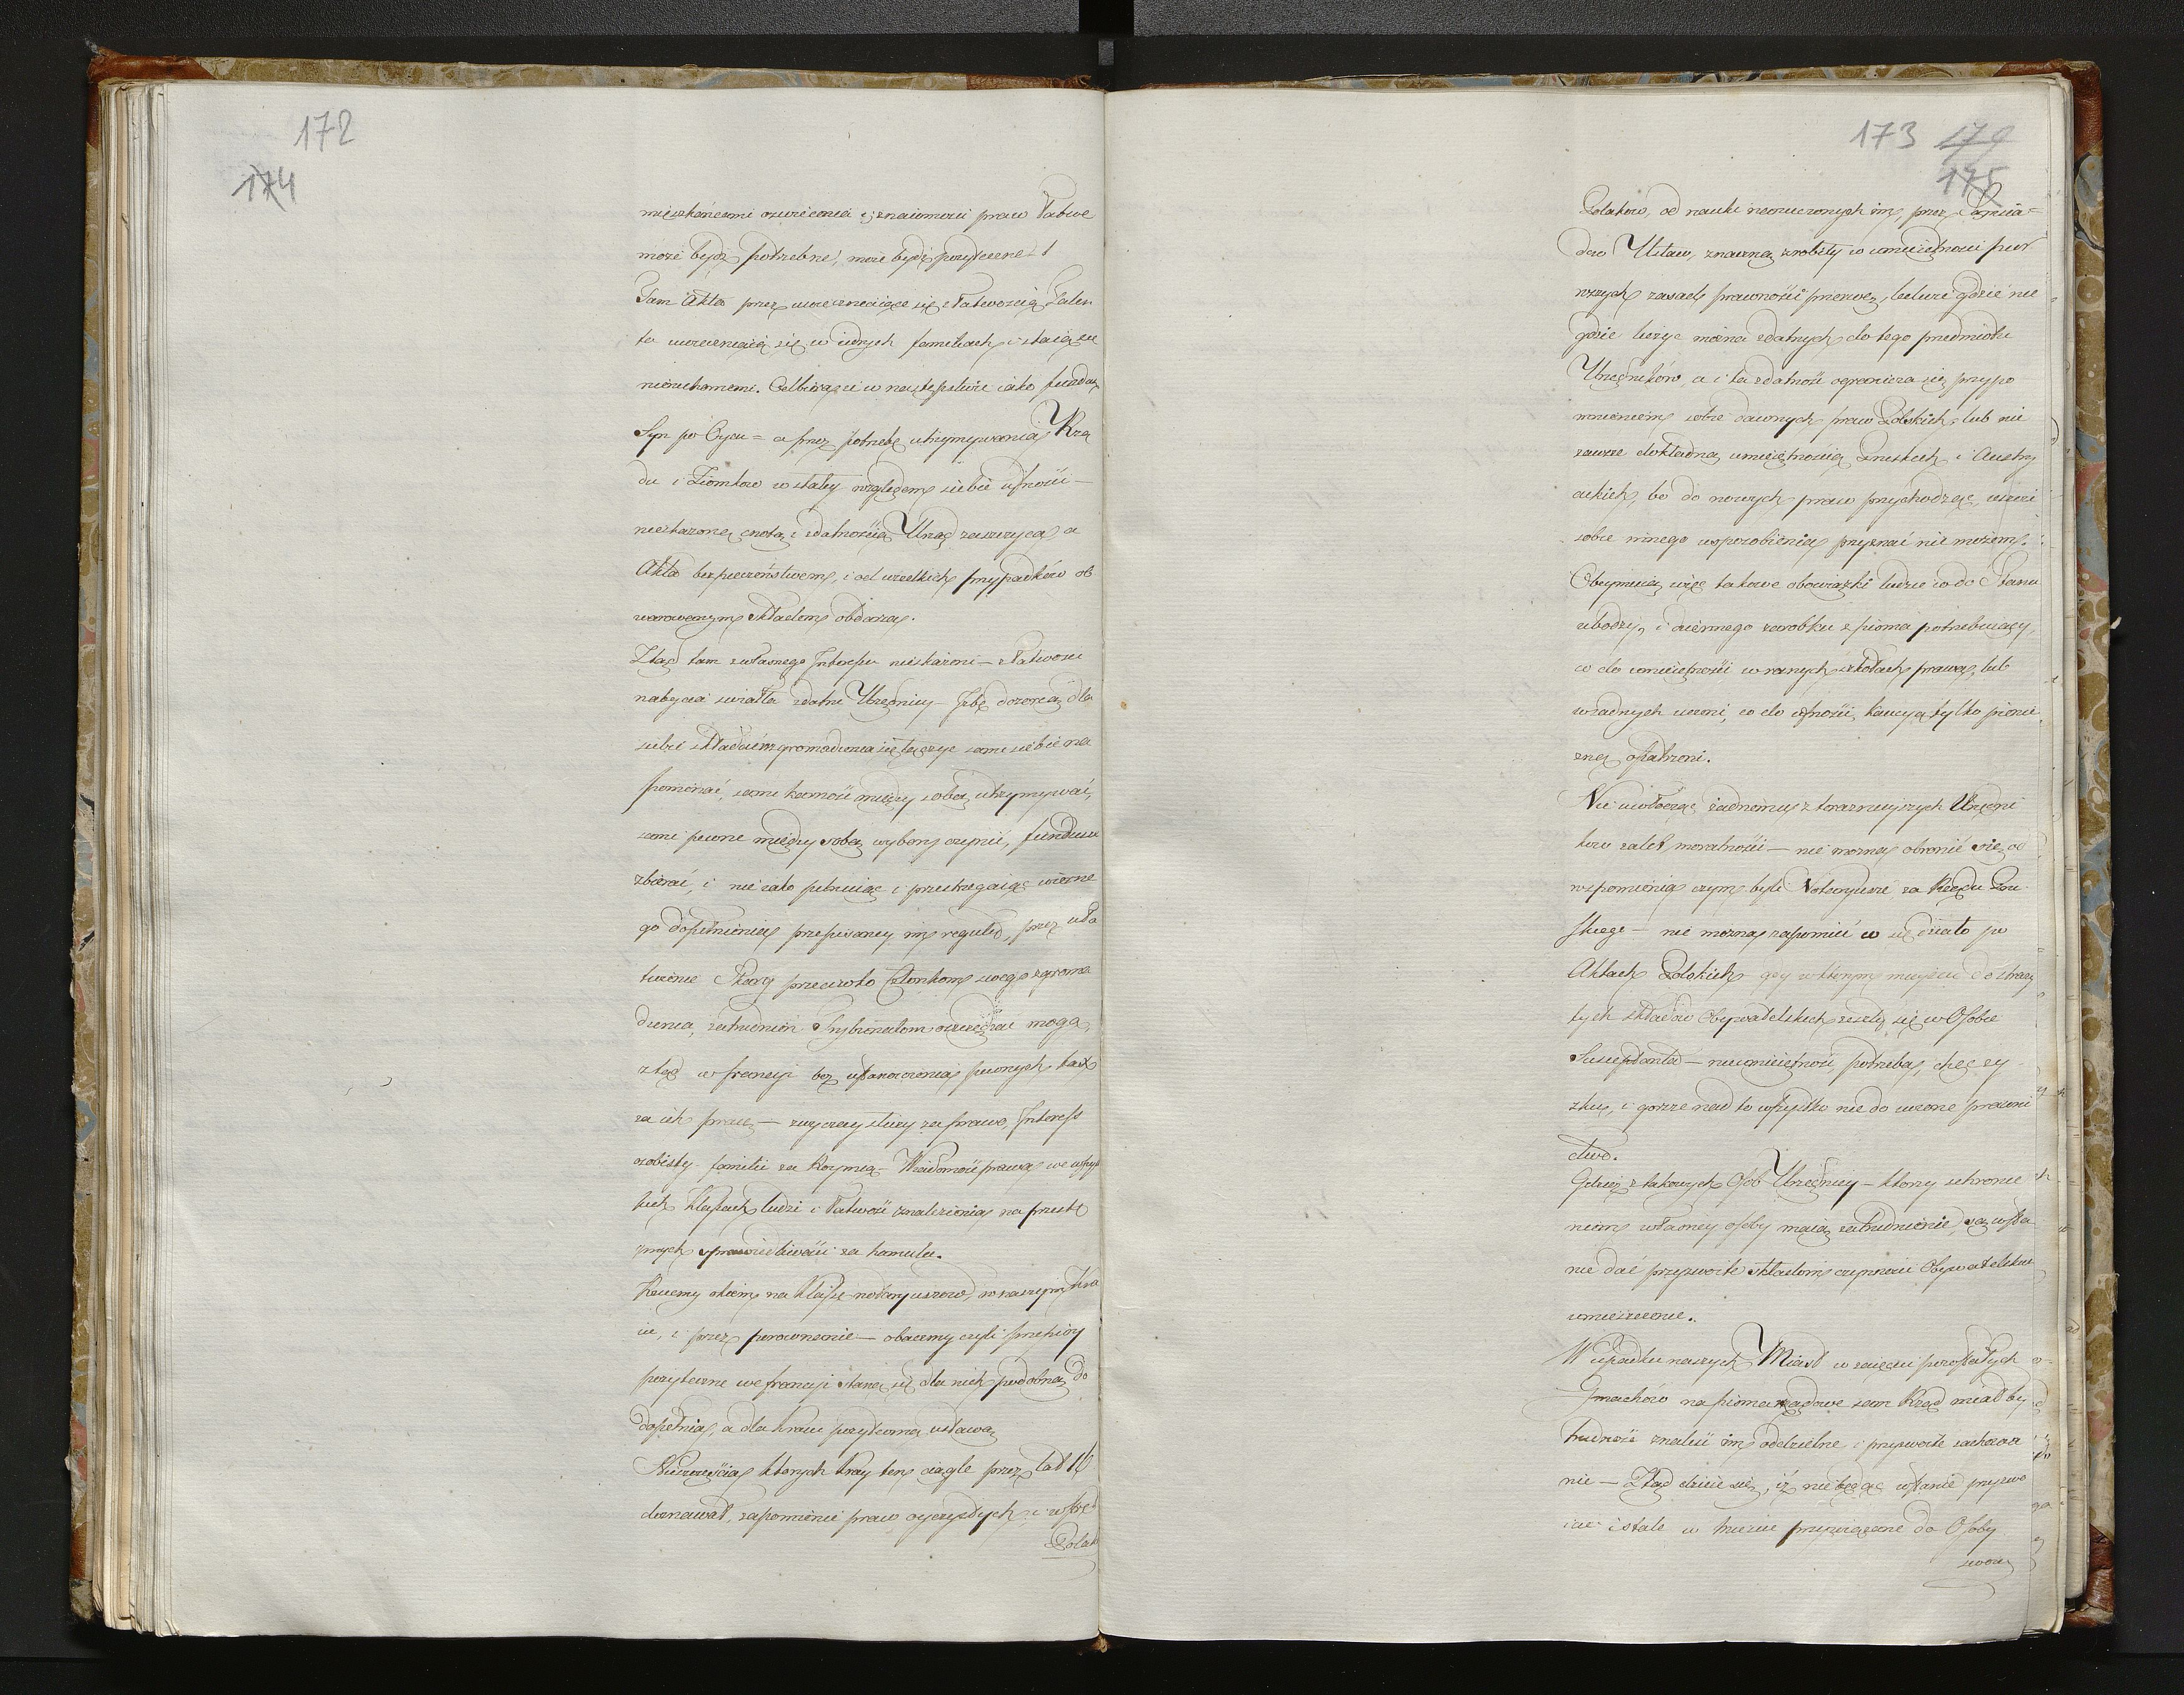 172
174
mieszkańcami oswiecenia i znaiomosci praw łatwe
może bydź potrzebne, może bydź pożyteczne!
Tam Akta przez uwieczniaiące się z łatwością Talen
ta uwieczniaią się w iednych familiach i staią się
nieruchomemi. Odbiera ie w następstwie iako fundusz
Syn po Oycu = a przez potrzebę utrzymywania Rzą
du i Ziomkow w stałey względem siebie ufności —
nieskażoną cnotą i zdatnością Urząd zaszczyca, a
Akta bezpieczeństwem, i od wszelkich przypadków ob
warowanym składem obdarza.
Ztąd tam z własnego Interessu nieskażeni — z łatwosci
nabycia swiatła zdatni Urzędnicy — Izbę dozorczą dla
siebie składaią zgromadzenia się
pominać, same karność między sobą utrzymywać,
same pewne między sobą wybory czynić, fundusze
zbierać, i nie iako pilnuiąc i przestrzegaiąc wierne
go dopełnienia przepisaney im reguły, przez uła
twienie Skarg przeciwko Członkom swego zgroma
dzenia, zatrudnień Trybunałom oszczędzać mogą,
ztąd w francyi bez ustanowienia pewnych tax
za ich pracę — zwyczay służy za prawo, Interess
osobisty familii za Rozymią — Wiadomość prawa we wszys
tkich klassach ludzi i łatwość znalezienia na przestę
pnych sprawiedliwości za hamulec.
Rzućmy okiem na klassę notaryuszow, w naszym Kra
iu, i przez porownanie — obaczmy czyli przepisy
pożyteczne we francyi staną się dla nich podobną do
dopełnia, a dla kraiu pożyteczną ustawą
Nieszczęścia, ktorych kray ten ciągle przez lat 16
doznawał, zapomnienie praw oyczystych, i wstręt
Polak
173 179
175
Polakow, od nauki narzuconych im, przez Sąsia=
dow Ustaw, znaczną zrobiły w umieiętności pier
wszych zasad prawności przerwę, ledwie gdzie nie
gdzie liczyć można zdatnych do tego przedmiotu
Urzędników, a i ta zdatność ogranicza się przypo
mnieniem sobie dawnych praw Polskich, lub nie
zawsze dokładną umieiętnością Pruskich i Austry
ackich, bo do nowych praw przychodząc, wszei
sobie innego usposobienia przyznać nie możemy.
Obeymuią więc takowe obowiązki ludzie co do Stanu
ubodzy, i dziennego zarobku z pisma potrzebuiący,
co do umieiętności w roznych szkołach prawa, lub
w żadnych uczeni, co do ufności, kaucyą tylko pienię
żną opatrzeni.
Nie uwłocząc żadnemu z teraznieyszych Urzędni
kow zalet moralności — nie można obronić się od
wspomnienia czym byli Notaryusze za Rządu Pru
skiego — nie można zapomnieć co się działo po
Aktach Polskich gdy w ktorym mieyscu do straży
tych składów Obywatelskich zeszły się w Osobie
Suscepdanta — nieumieiętność, potrzeba, chęć zy
sku, i gorsze nad to wszystko nie do uczone prawni
ctwo.
Gdzież z takowych Osob Urzędnicy — ktorzy schronie
niem własney osoby maią zatrudnienie, są w sta
nie dać przyzwoite składom czynności Obywatelskich
umieszczenie.
W upadku naszych Miast w zaięciu pozostałych
Gmachów na pisma rządowe sam Rząd miałby
trudność znaleść im oddzielne i przyzwoite zachowa
nie — Ztąd dzieie się, iż nie będąc w stanie przyzwo
icie i stale w kraiu przywiązane do Osoby
swoią